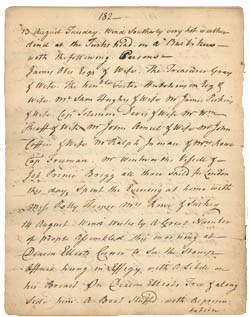 182
13 August Tuesday. Wind Southerly very hot weather
dined at the Turks head, on a Barbicue
with the following Persons
James Otis Esqr & Wife. The Treasurer Gray
& Wife. The honble Foster Hutchinson Esq &
Wife. Mr Sam Hughes & Wife Mr James Perkins
& Wife Capt Solomon Davis & Wife Mr Wm
& Wife Mr John Rowe & Wife Mr John
Coffin & Wife Mr Ralph Inman & Mrs Rowe
Cap Freeman. Mr Wentworth
Jos Prince Bargg all those Said for London
this day, Spent the Evening at home with
Miss Patty Mrs Rowe & Sukey
14 August. Wind Westerly a Great Number
of people Assembled this morning at
Deacon Elliots Corner to See the Stamp
Officer hung in Effigy with a Libel on
his Breast, On Deacon Elliots Tree & along
Side him a Boot Stuffed with